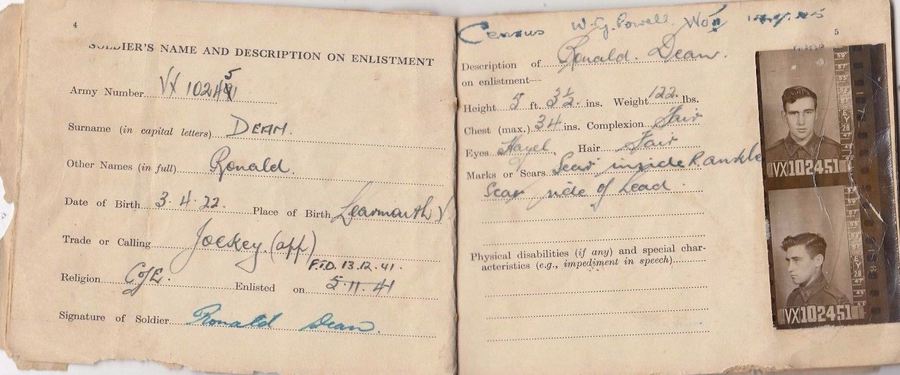 4
SOLDIER'S NAME AND DESCRIPTION ON ENLISTMENT
Army Number VX 102451
Surname (in capital letters) DEAN.
Other Names (in full) Ronald.
Date of Birth 3.4.22 Place of Birth Learmonth V.
Trade or Calling Jockey (app)
F.T.D. 13.12.41.
Religion C of E. Enlisted on 5.11.41
Signature of Soldier Ronald Dean.
Census W.G. Powell.
5
Description of Ronald. Dean.
on enlistment—
Height 5 ft. 3½ ins. Weight 122 lbs.
Chest (max.) 34 ins. Complexion Fair
Eyes Hazel Hair Fair
Marks or Scars Scar inside R ankle
Scar side of head.
Physical disabilities (if any) and special char-
acteristics (e.g., impediment in speech)
VX102451
VX102451